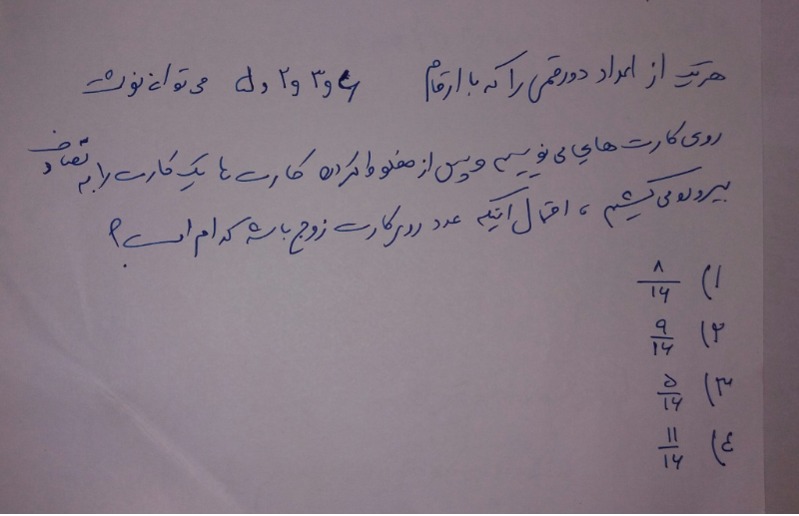 هر یک از اعداد دو رقمی را که با ارقام ۶ و ۳ و ۲ و ۵ می توان نوشت
روی کارت هایی می نویسیم و پس از مخلوط کردن کارت ها یک کارت را به تصادف
بیرون می کشیم ، احتمال اینکه عدد روی کارت زوج باشد کدام است ؟
۱) ۸/۱۶
۲) ۹/۱۶
۳) ۵/۱۶
۴) ۱۱/۱۶